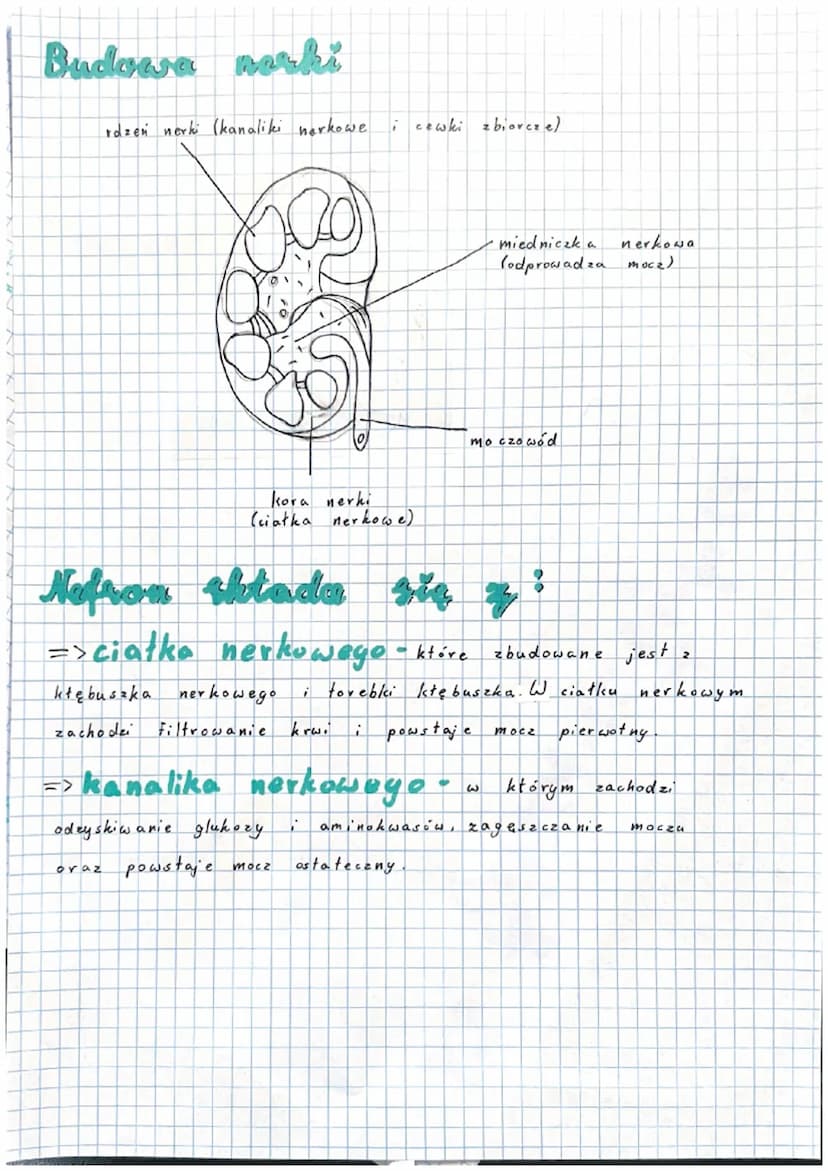 Budowa nerki
rdzeń nerki (kanaliki nerkowe i cewki zbiorcze)
miedniczka nerkowa
(odprowadza mocz)
moczowód
kora nerki
(ciałka nerkowe)
Nefron składa się z:
=> ciałka nerkowego - które zbudowane jest z
kłębuszka nerkowego i torebki kłębuszka. W ciałku nerkowym
zachodzi filtrowanie krwi i powstaje mocz pierwotny.
=> kanalika nerkowego - w którym zachodzi
odzyskiwanie glukozy i aminokwasów, zagęszczanie moczu
oraz powstaje mocz ostateczny.